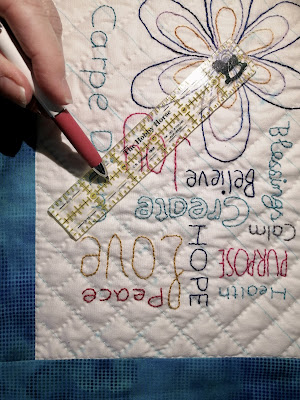 Carpe D
The Hobby Horse
Blessings
Believe
Create
Calm
HOPE
PURPOSE
LOVE
Health
Peace